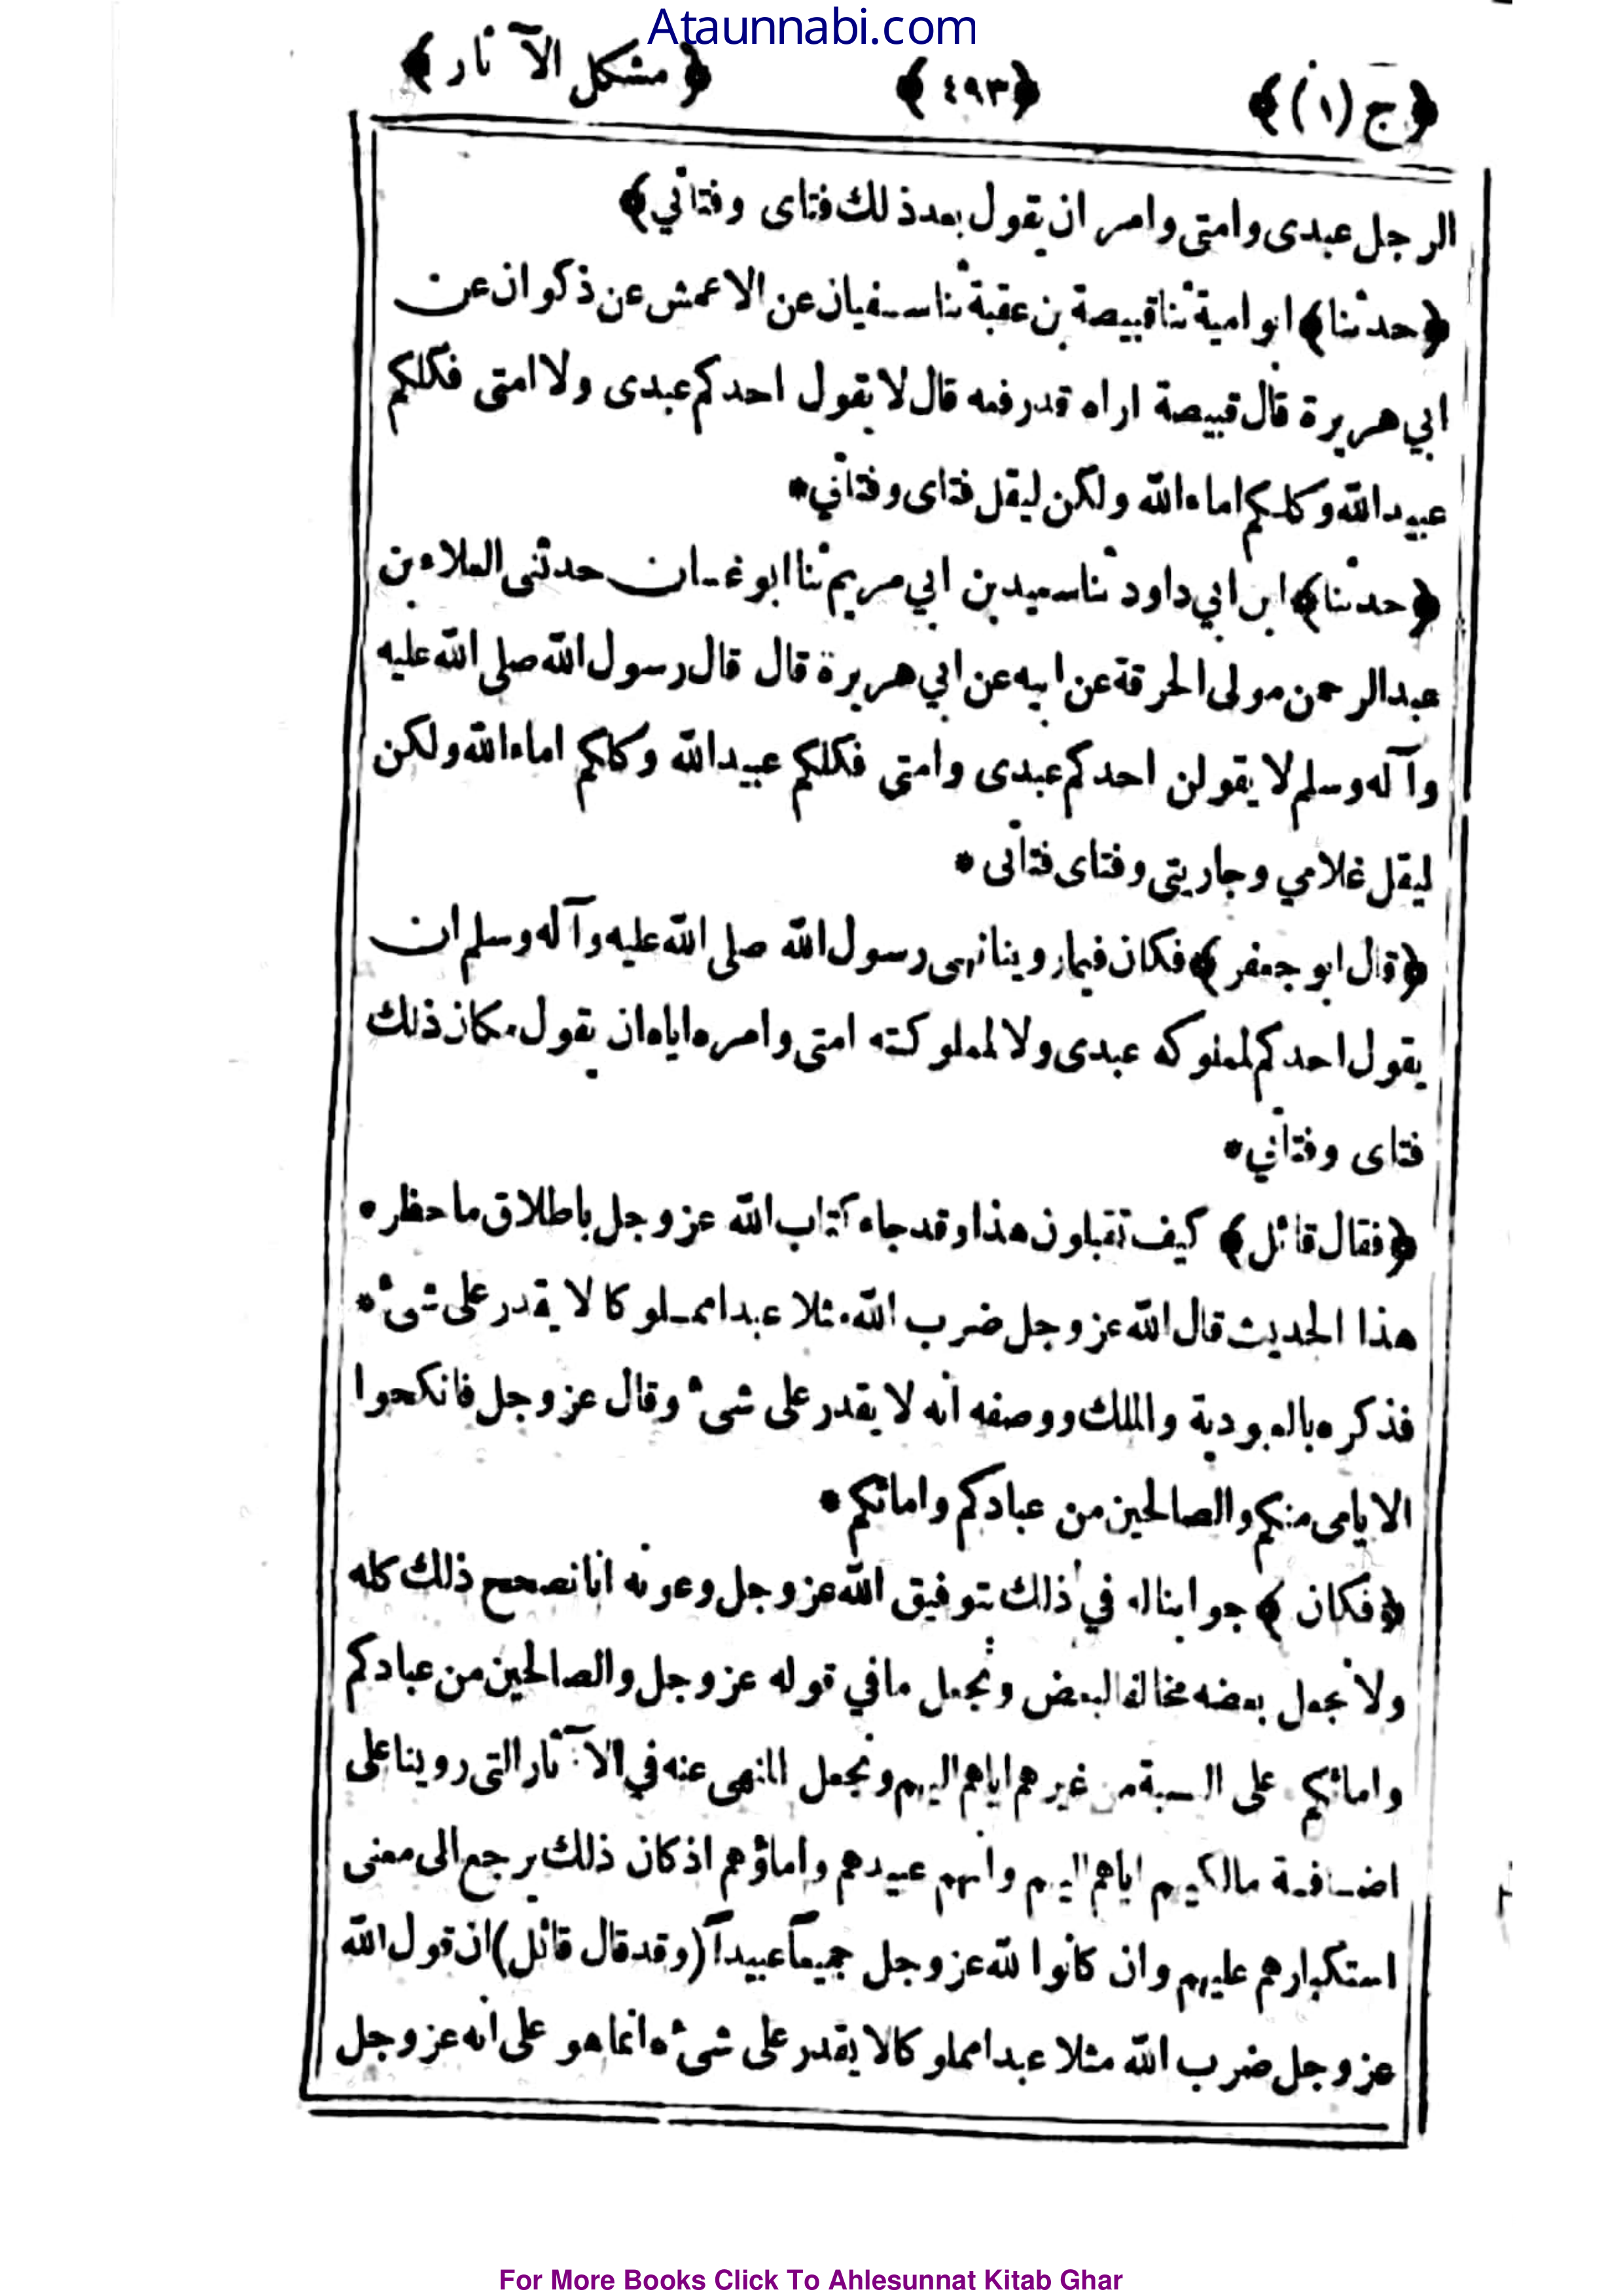 Ataunnabi.com
﴿ج (١)﴾ ﴿٤٩٣﴾ ﴿مشكل الآثار﴾
الرجل عبدى وامتى وامر ان يقول بعد ذلك فتاى وفتاتي﴾
﴿حدثنا﴾ ابو امية ثنا قبيصة بن عقبة ثنا سفيان عن الاعمش عن ذكوان عن
ابي هريرة قال قبيصة اراه قد رفعه قال لا يقول احدكم عبدى ولا امتى فكلكم
عبيد الله وكلكم اماء الله ولكن ليقل فتاى وفتاتي*
﴿حدثنا﴾ ابن ابي داود ثنا سعيد بن ابي مريم ثنا ابو غسان حدثنى العلاء بن
عبد الرحمن مولى الحرقة عن ابيه عن ابي هريرة قال قال رسول الله صلى الله عليه
وآله وسلم لا يقولن احدكم عبدى وامتى فكلكم عبيد الله وكلكم اماء الله ولكن
ليقل غلامي وجاريتى وفتاى فتاتى *
﴿قال ابو جعفر﴾ فكان فيما روينا نهى رسول الله صلى الله عليه وآله وسلم ان
يقول احدكم لمملوكه عبدى ولا لمملوكته امتى وامره اياه ان يقول مكان ذلك
فتاى وفتاتي*
﴿فقال قائل﴾ كيف تقبلون هذا وقد جاء كتاب الله عز وجل باطلاق ما حظره
هذا الحديث قال الله عز وجل ضرب الله مثلا عبدا مملوكا لا يقدر على شئ*
فذكره بالعبودية والملك ووصفه انه لا يقدر على شئ وقال عز وجل فانكحوا
الايامى منكم والصالحين من عبادكم وامائكم*
﴿فكان﴾ جوابنا له في ذلك بتوفيق الله عز وجل وعونه انا نصحح ذلك كله
ولا نجعل بعضه مخالفا لبعض ونجعل ما في قوله عز وجل والصالحين من عبادكم
وامائكم على النسبة من غيرهم اياهم اليهم ونجعل المنهى عنه في الآثار التى روينا على
اضافة مالكيهم اياهم اليهم وانهم عبيدهم واماؤهم اذ كان ذلك يرجع الى معنى
استكبارهم عليهم وان كانوا لله عز وجل جميعاً عبيداً (وقد قال قائل) ان قول الله
عز وجل ضرب الله مثلا عبدا مملوكا لا يقدر على شئ ه انما هو على انه عز وجل
For More Books Click To Ahlesunnat Kitab Ghar